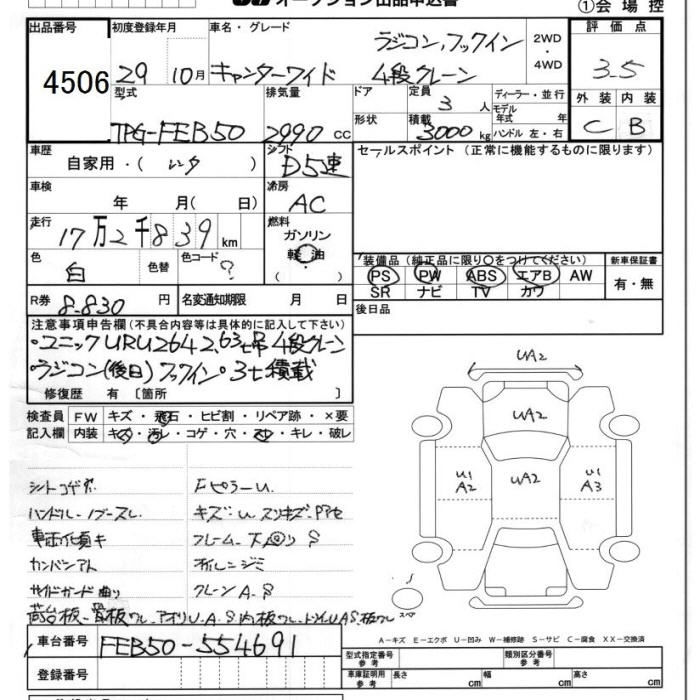 オークション出品申込書
①会場控
出品番号 4506
初度登録年月 29 10月
車名・グレード ラジコン,フックイン
キャンターワイド 4段クレーン
2WD・4WD
評価点 3.5
外装 C 内装 B
型式 TPG-FEB50
排気量 2990 cc
ドア 形状
定員 3 人
積載 3000 kg
ディーラー・並行
モデル年式 年
ハンドル 左・右
車歴 自家用・( レンタ )
シフト D5速
セールスポイント (正常に機能するものに限ります)
車検 年 月 ( 日)
冷房 AC
走行 17万2千839 km
燃料 ガソリン 軽油 ( )
色 白 色替 色コード ?
装備品 (純正品に限り○をつけてください)
PS PW ABS エアB AW
SR ナビ TV カワ
新車保証書 有・無
R券 8.830 円
名変通知期限 月 日
後日品
注意事項申告欄 (不具合内容等は具体的に記入して下さい)
・ユニックURU264 2.63t吊 4段クレーン
・ラジコン(後日)フックイン・3t積載
修復歴 有 〔箇所 〕
検査員記入欄
FW キズ・飛石・ヒビ割・リペア跡・×要
内装 キズ・汚レ・コゲ・穴・スレ・キレ・破レ
シートコゲ穴 FピラーU
ハンドル・ノブスレ キズ・U スリキズ・
車両傾キ フレーム・下廻りS
カンバンアト 木レニジミ
サイドガード曲り クレーンA.S
荷台板・骨板ワレ アオリU.A.S 内板ワレ
UA2
UA2
U1 A2
UA2
U1 A3
スペア
A－キズ E－エクボ U－凹み W－補修跡 S－サビ C－腐食 XX－交換済
車台番号 FEB50-554691
型式指定番号 参考
類別区分番号 参考
登録番号
車庫証明用 参考 長さ cm 幅 cm 高さ cm